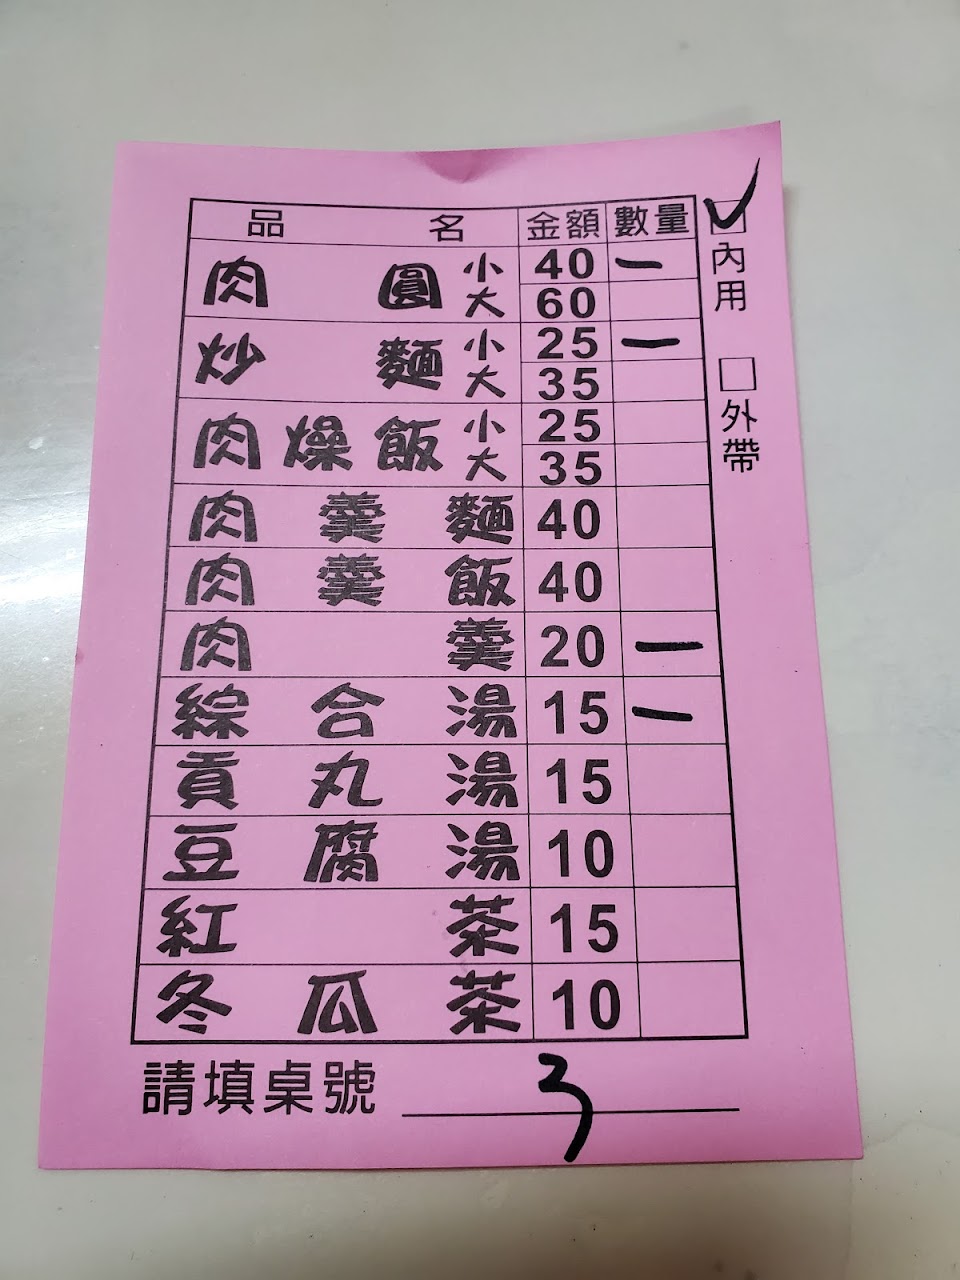 品名 金額 數量
肉圓 小 40 一
大 60
炒麵 小 25 一
大 35
肉燥飯 小 25
大 35
肉羹麵 40
肉羹飯 40
肉羹 20 一
綜合湯 15 一
貢丸湯 15
豆腐湯 10
紅茶 15
冬瓜茶 10
請填桌號 3
✓
內用
□外帶